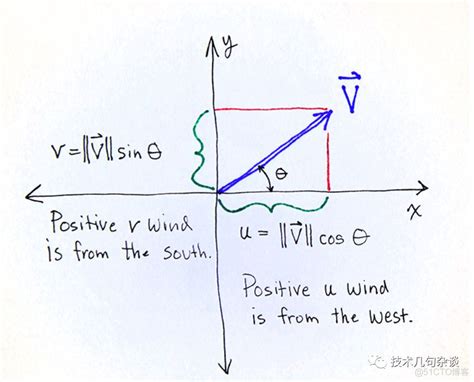 y
V
v = ‖V‖ sin θ
θ
x
Positive v wind
is from the south.
u = ‖V‖ cos θ
Positive u wind
is from the west.
技术几句杂谈
@51CTO博客